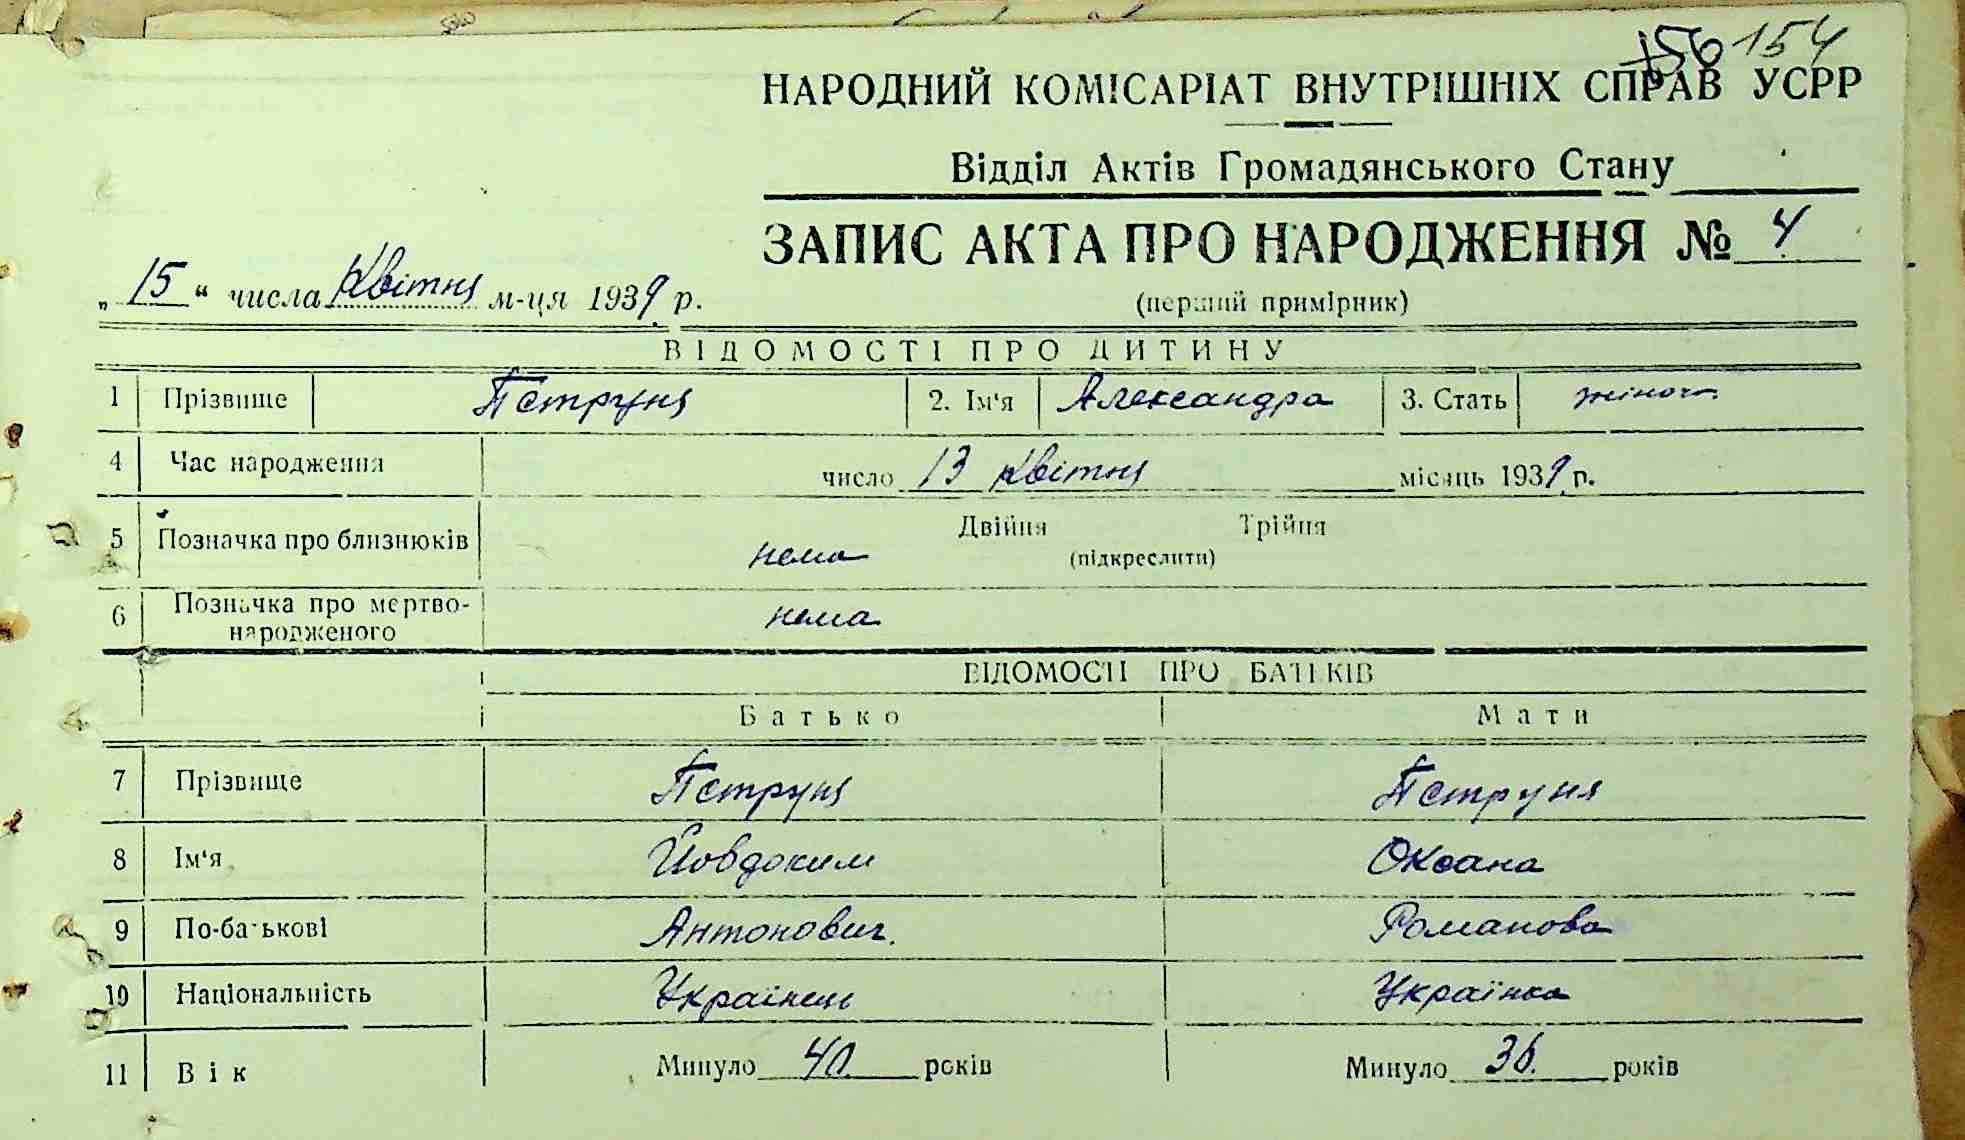 156 154
НАРОДНИЙ КОМІСАРІАТ ВНУТРІШНІХ СПРАВ УСРР
Відділ Актів Громадянського Стану
ЗАПИС АКТА ПРО НАРОДЖЕННЯ № 4
„15“ числа Квітня м-ця 1939 р.
(перший примірник)
ВІДОМОСТІ ПРО ДИТИНУ
1 Прізвище Пструня 2. Ім'я Александра 3. Стать жіноча
4 Час народження число 13 Квітня місяць 1939 р.
5 Позначка про близнюків нема Двійня Трійня
(підкреслити)
6 Позначка про мертво-
народженого нема
ВІДОМОСТІ ПРО БАТЬКІВ
Батько Мати
7 Прізвище Пструня Пструня
8 Ім'я Йовдоким Оксана
9 По-батькові Антонович Романова
10 Національність Українець Українка
11 Вік Минуло 40 років Минуло 36 років